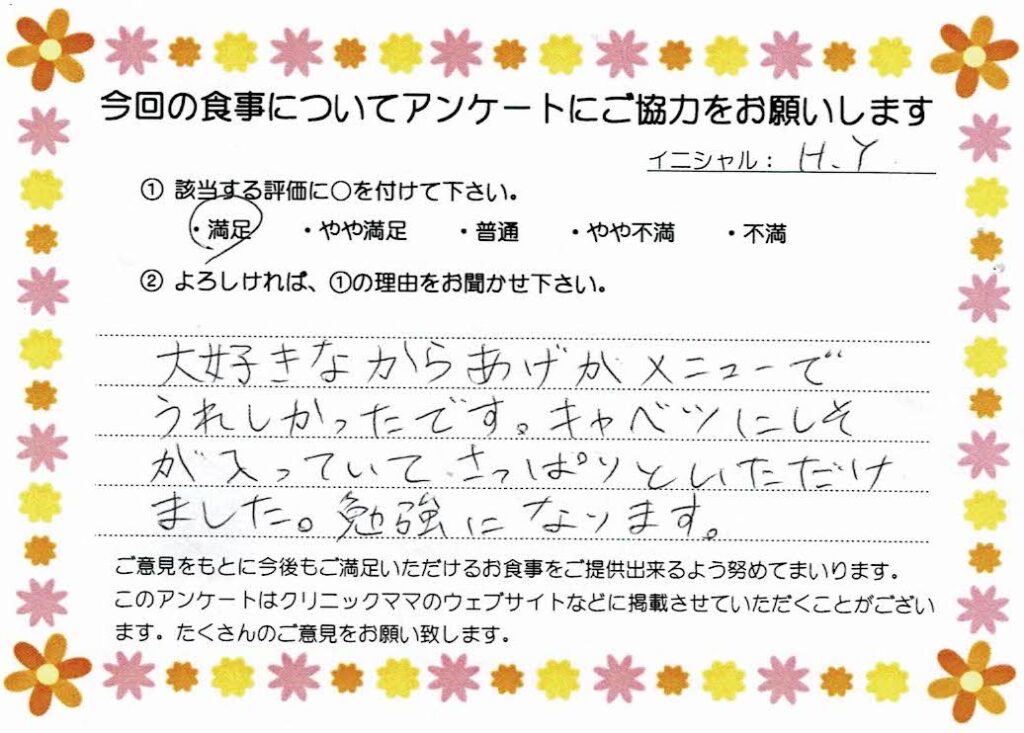 今回の食事についてアンケートにご協力をお願いします
イニシャル： H.Y
① 該当する評価に○を付けて下さい。
・満足 ・やや満足 ・普通 ・やや不満 ・不満
② よろしければ、①の理由をお聞かせ下さい。
大好きなからあげがメニューで
うれしかったです。キャベツにしそ
が入っていてさっぱりといただけ
ました。勉強になります。
ご意見をもとに今後もご満足いただけるお食事をご提供出来るよう努めてまいります。
このアンケートはクリニックママのウェブサイトなどに掲載させていただくことがござい
ます。たくさんのご意見をお願い致します。